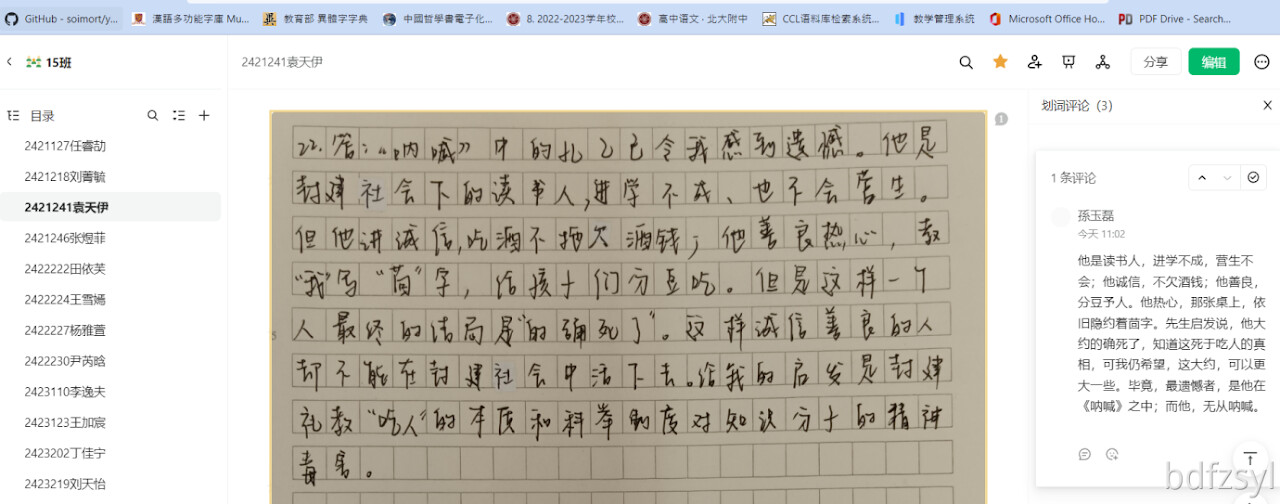 GitHub - soimort/y...
漢語多功能字庫 Mu...
教育部 異體字字典
中國哲學書電子化...
8. 2022-2023学年校...
高中语文 · 北大附中
CCL语料库检索系统...
教学管理系统
Microsoft Office Ho...
PDF Drive - Search...
15班
2421241袁天伊
分享
编辑
目录
2421127任睿劼
2421218刘菁毓
2421241袁天伊
2421246张煜菲
2422222田依芙
2422224王雪嫣
2422227杨雅萱
2422230尹芮晗
2423110李逸夫
2423123王加宸
2423202丁佳宁
2423219刘天怡
22.答:“《呐喊》”中的孔乙己令我感到遗憾。他是
封建社会下的读书人,进学不成、也不会营生。
但他讲诚信,吃酒不拖欠酒钱;他善良热心,教
“我”写“茴”字,给孩子们分豆吃。但是这样一个
人最终的结局是“的确死了”。这样诚信善良的人
却不能在封建社会中活下去。给我的启发是封建
礼教“吃人”的本质和科举制度对知识分子的精神
毒害。
5
1
划词评论（3）
1 条评论
孫玉磊
今天 11:02
他是读书人，进学不成，营生不
会；他诚信，不欠酒钱；他善良，
分豆予人。他热心，那张桌上，依
旧隐约着茴字。先生启发说，他大
约的确死了，知道这死于吃人的真
相，可我仍希望，这大约，可以更
大一些。毕竟，最遗憾者，是他在
《呐喊》之中；而他，无从呐喊。
bdfzsyl